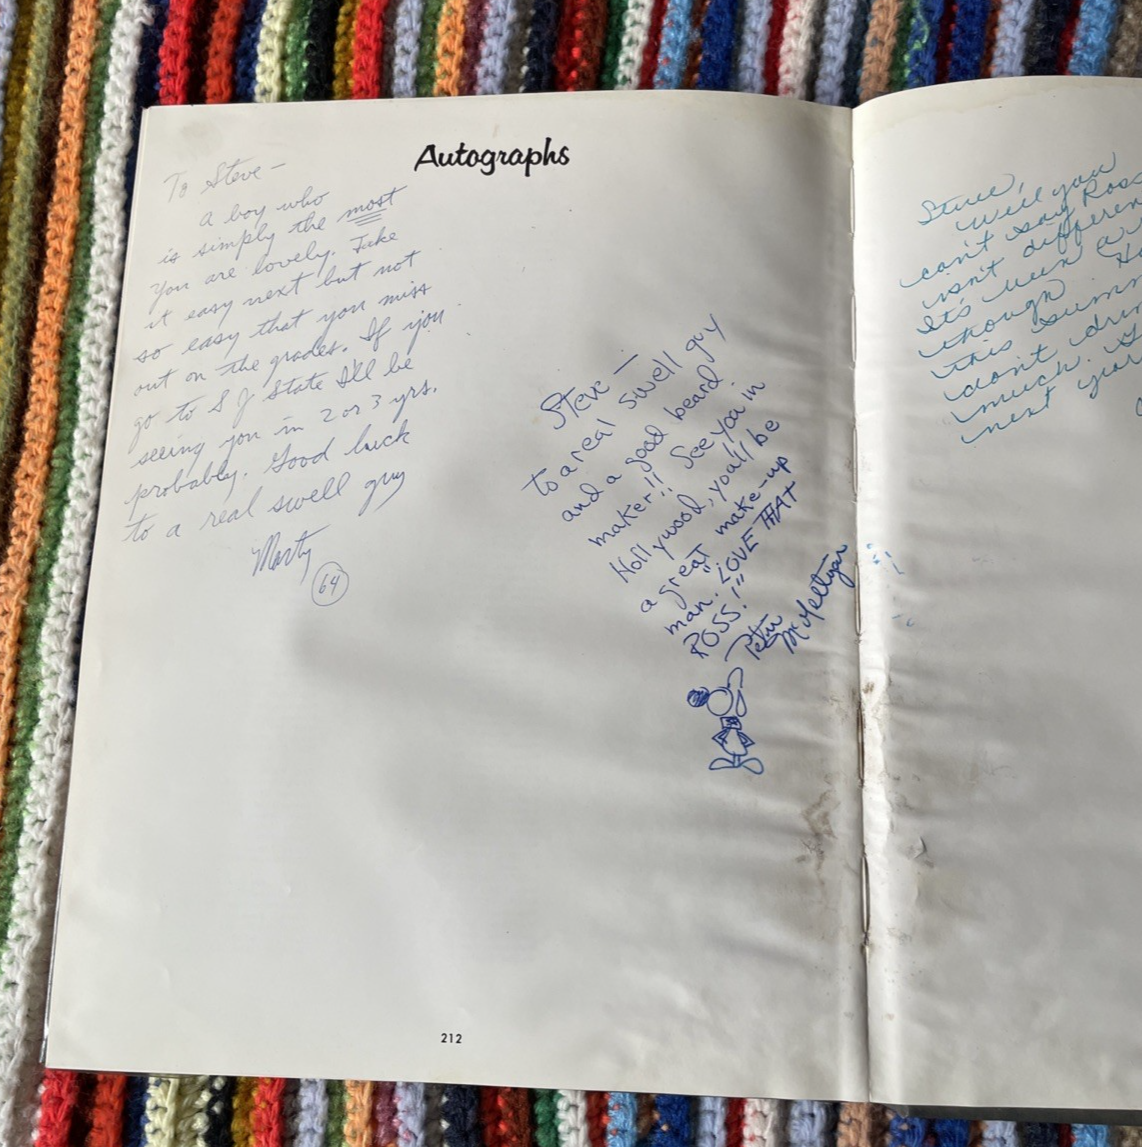 Autographs
To Steve –
a boy who
is simply the most
you are lovely. Take
it easy next but not
so easy that you miss
out on the grades. If you
go to S J State I'll be
seeing you in 2 or 3 yrs.
probably. Good luck
to a real swell guy
Marty
64
Steve –
to a real swell guy
and a good beard
maker!! See you in
Hollywood, you'll be
a great make-up
man. "LOVE THAT
ROSS!"
Peter
212
Steve,
Well you
can't say Ross
isn't differen
It's been a
though
this summ
don't
much.
next year